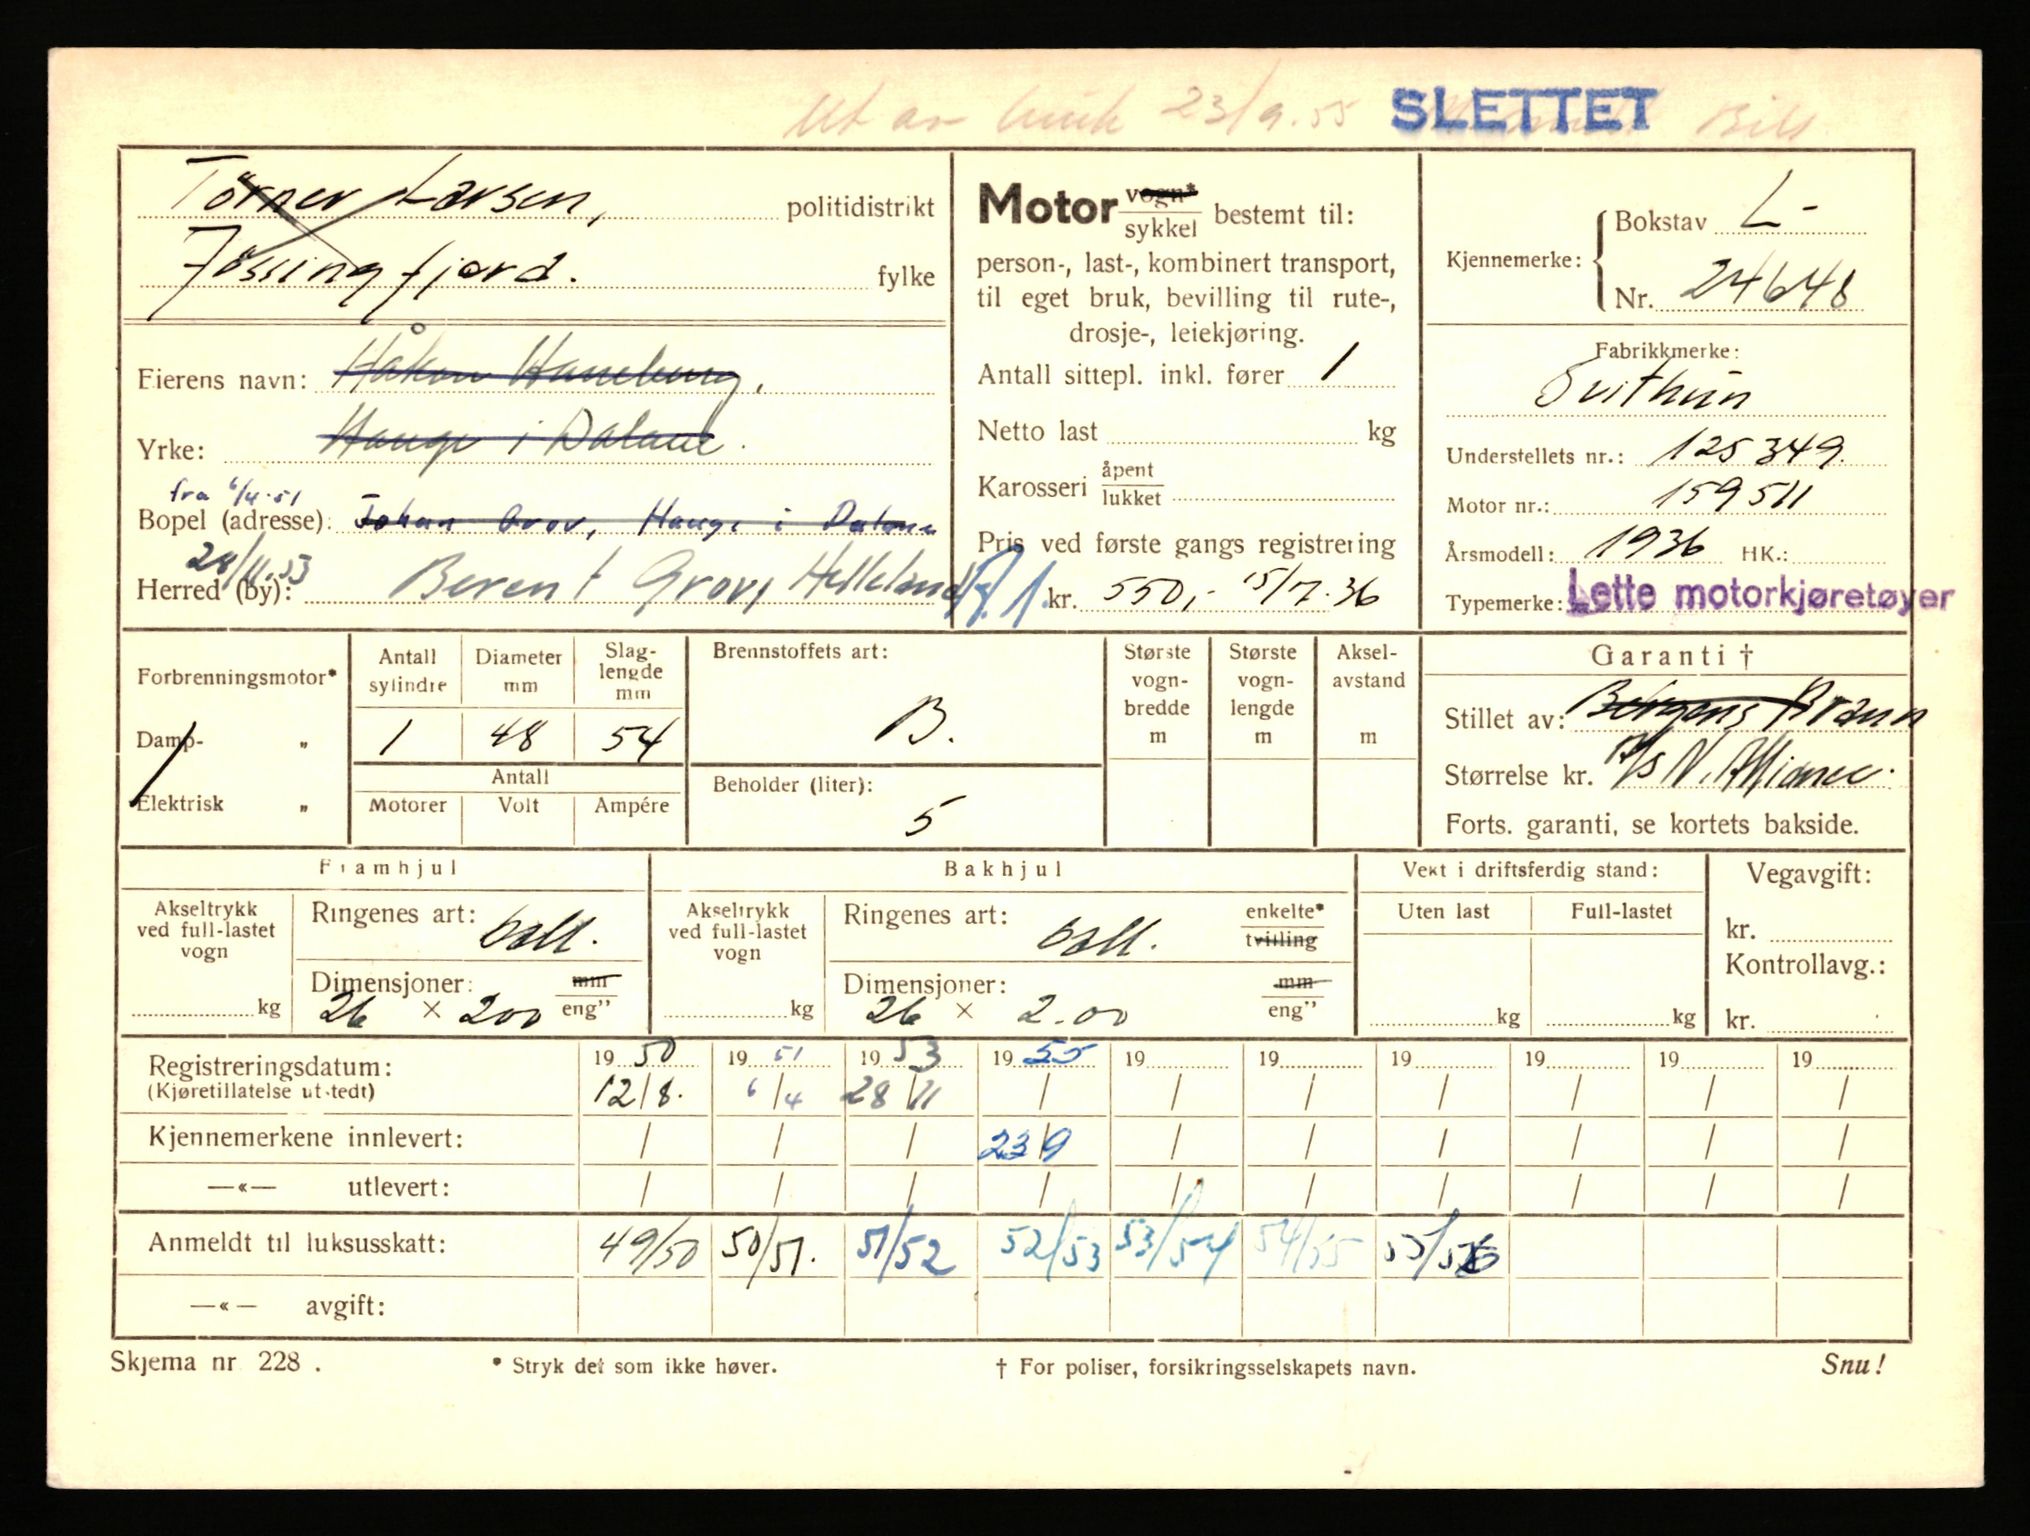 Ut av bruk 23/9.55 SLETTET
Törner Larsen, politidistrikt
Jössingfjord. fylke
Eierens navn: Håkon Haneberg.
Yrke: Hauge i Dalane.
fra 6/4.51
Bopel (adresse): Johan Grov, Hauge i Dalane
28/11.53
Herred (by): Berent Grov, Helleland
Motor vogn*
sykkel bestemt til:
person-, last-, kombinert transport,
til eget bruk, bevilling til rute-,
drosje-, leiekjøring.
Antall sittepl. inkl. fører 1
Netto last kg
Karosseri åpent
lukket
Pris ved første gangs registrering
kr. 550,- 15/7.36
Kjennemerke: Bokstav L-
Nr. 24648
Fabrikkmerke:
Svithun
Understellets nr.: 125349.
Motor nr.: 159511
Årsmodell: 1936 HK.:
Typemerke: Lette motorkjøretøyer
Forbrenningsmotor*
Damp- "
Elektrisk "
Antall sylindre Diameter mm Slaglengde mm
1 48 54
Antall
Motorer Volt Ampére
Brennstoffets art:
B.
Beholder (liter):
5
Største vognbredde m
Største vognlengde m
Akselavstand m
Garanti †
Stillet av: Bergens Brann
Størrelse kr. A/S N. Allianec.
Forts. garanti, se kortets bakside.
Framhjul
Akseltrykk ved full-lastet vogn
kg
Ringenes art: ball.
Dimensjoner: mm
26 × 200 eng"
Bakhjul
Akseltrykk ved full-lastet vogn
kg
Ringenes art: ball. enkelte*
tvilling
Dimensjoner: mm
26 × 2.00 eng"
Vekt i driftsferdig stand:
Uten last Full-lastet
kg kg
Vegavgift:
kr.
Kontrollavg.:
kr.
Registreringsdatum: 19 50 19 51 19 53 19 55 19 19 19 19 19 19
(Kjøretillatelse utstedt) 12/8. 6/4 28/11 / / / / / / /
Kjennemerkene innlevert: / / / 23/9 / / / / / /
—«— utlevert: / / / / / / / / / /
Anmeldt til luksusskatt: 49/50 50/51. 51/52 52/53 53/54 54/55 55/56
—«— avgift:
Skjema nr 228. * Stryk det som ikke høver. † For poliser, forsikringsselskapets navn. Snu!